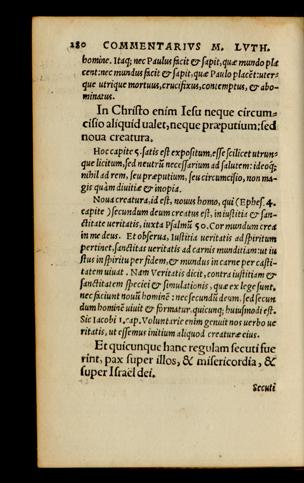 280 COMMENTARIVS M. LVTH.
homine. Itaq; nec Paulus facit & sapit, quæ mundo pla
cent: nec mundus facit & sapit, quæ Paulo placēt: uter=
que utrique mortuus, crucifixus, contemptus, & abo=
minatus.
In Christo enim Iesu neque circum=
cisio aliquid ualet, neque præputium: sed
noua creatura.
Hoc capite 5. satis est expositum, esse scilicet utrun=
que licitum, sed neutrū necessarium ad salutem: ideoq;
nihil ad rem, seu præputium, seu circumcisio, non ma=
gis quàm diuitiæ & inopia.
Noua creatura, id est, nouus homo, qui (Ephes. 4.
capite) secundum deum creatus est, in iustitia & san=
ctitate ueritatis, iuxta Psalmū 50. Cor mundum crea
in me deus. Et obserua, Iustitia ueritatis ad spiritum
pertinet, sanctitas ueritatis ad carnis munditiam: ut iu
stus sit spiritu per fidem, & mundus in carne per casti=
tatem uiuat. Nam Veritatis dicit, contra iustitiam &
sanctitatem speciei & simulationis, quæ ex lege sunt,
nec faciunt nouū hominē: nec secundū deum, sed secun
dum hominē uiuit & formatur, quicunq; huiusmodi est.
Sic Iacobi 1. cap. Voluntarie enim genuit nos uerbo ue
ritatis, ut essemus initium aliquod creaturæ eius.
Et quicunque hanc regulam secuti fue
rint, pax super illos, & misericordia, &
super Israël dei.
Secuti